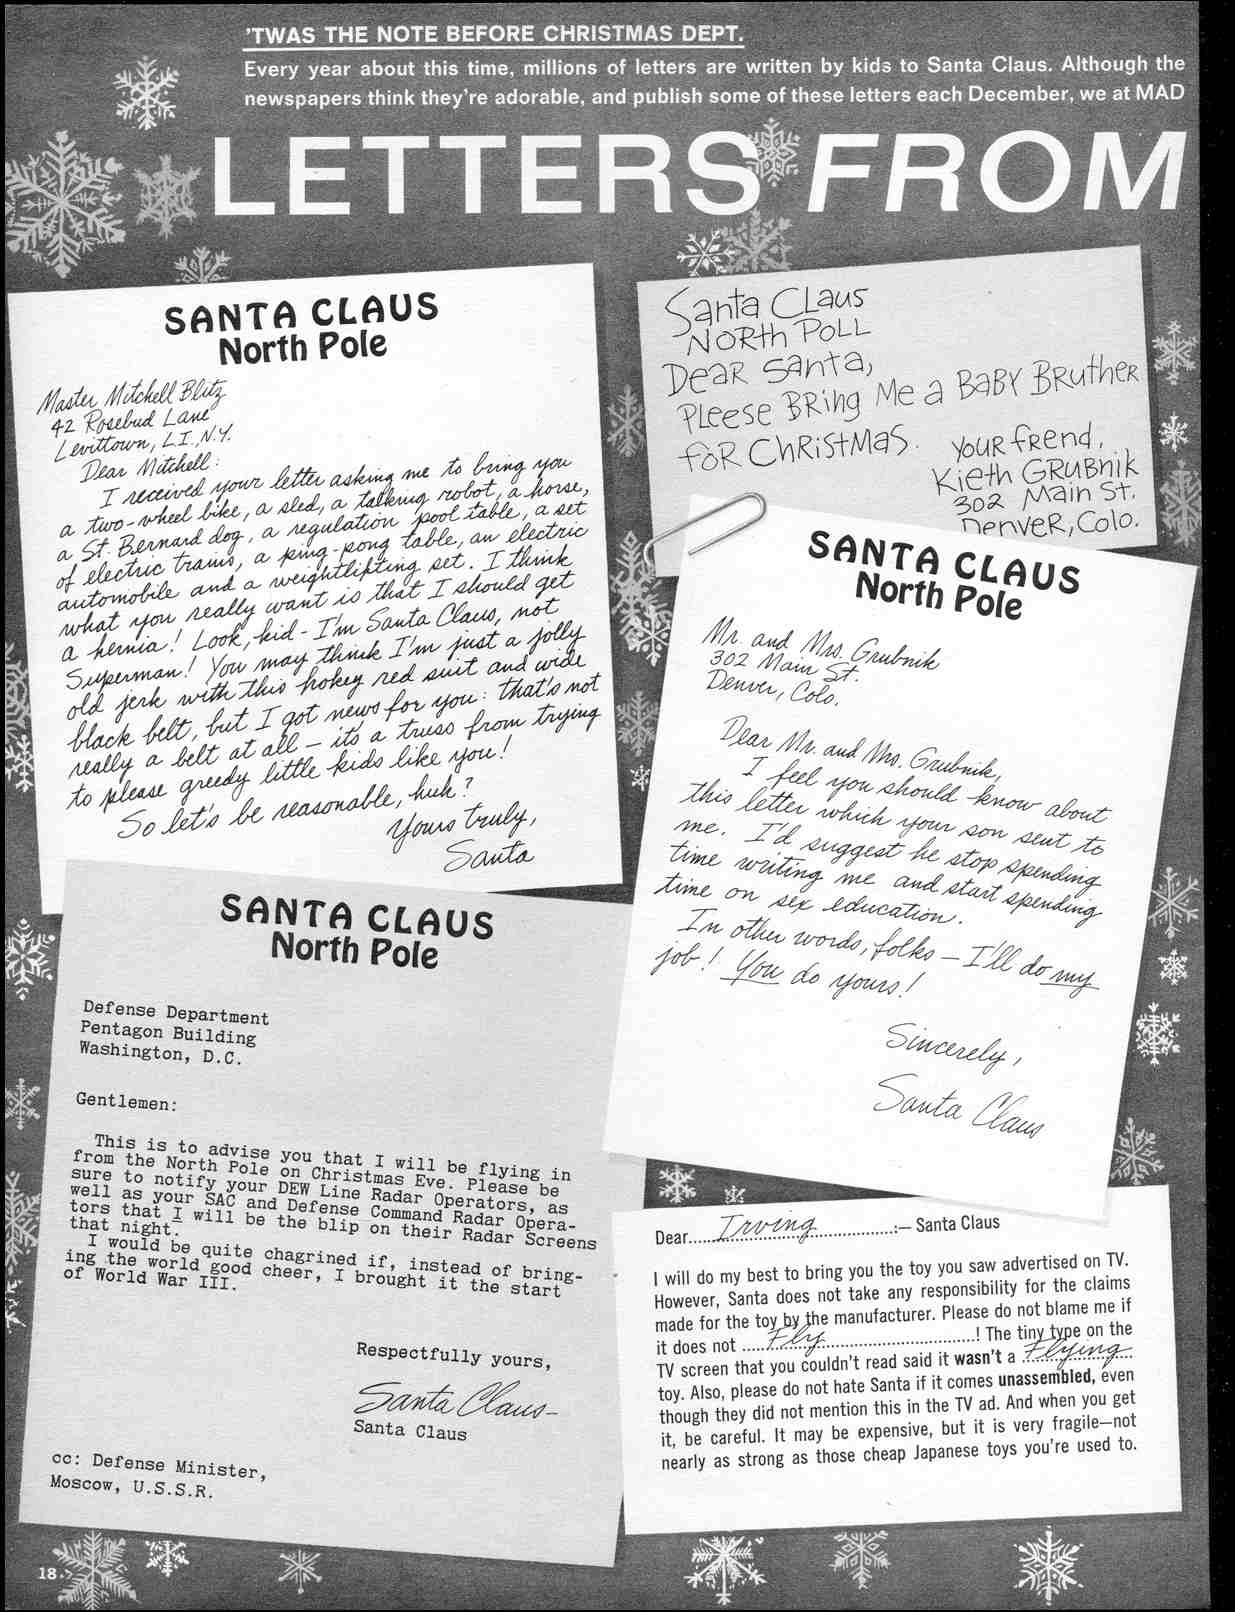 'TWAS THE NOTE BEFORE CHRISTMAS DEPT.
Every year about this time, millions of letters are written by kids to Santa Claus. Although the
newspapers think they're adorable, and publish some of these letters each December, we at MAD
LETTERS FROM
SANTA CLAUS
North Pole
Master Mitchell Blitz
42 Rosebud Lane
Levittown, L.I. N.Y.
Dear Mitchell:
I received your letter asking me to bring you
a two-wheel bike, a sled, a talking robot, a horse,
a St. Bernard dog, a regulation pool table, a set
of electric trains, a ping-pong table, an electric
automobile and a weightlifting set. I think
what you really want is that I should get
a hernia! Look, kid - I'm Santa Claus, not
Superman! You may think I'm just a jolly
old jerk with this hokey red suit and wide
black belt, but I got news for you: that's not
really a belt at all – it's a truss from trying
to please greedy little kids like you!
So let's be reasonable, huh?
Yours truly,
Santa
Santa CLaus
NORth POLL
DeaR Santa,
PLeese BRing Me a BaBY BRutheR
foR ChRistMas.
YouR fRend,
Kieth GRuBnik
302 Main St.
DenveR, Colo.
SANTA CLAUS
North Pole
Mr. and Mrs. Grubnik
302 Main St.
Denver, Colo.
Dear Mr. and Mrs. Grubnik,
I feel you should know about
this letter which your son sent to
me. I'd suggest he stop spending
time writing me and start spending
time on sex education.
In other words, folks – I'll do my
job! You do yours!
Sincerely,
Santa Claus
SANTA CLAUS
North Pole
Defense Department
Pentagon Building
Washington, D.C.
Gentlemen:
This is to advise you that I will be flying in
from the North Pole on Christmas Eve. Please be
sure to notify your DEW Line Radar Operators, as
well as your SAC and Defense Command Radar Opera-
tors that I will be the blip on their Radar Screens
that night.
I would be quite chagrined if, instead of bring-
ing the world good cheer, I brought it the start
of World War III.
Respectfully yours,
Santa Claus
Santa Claus
cc: Defense Minister,
Moscow, U.S.S.R.
Dear.....Irving...............:— Santa Claus
I will do my best to bring you the toy you saw advertised on TV.
However, Santa does not take any responsibility for the claims
made for the toy by the manufacturer. Please do not blame me if
it does not .....Fly..............................! The tiny type on the
TV screen that you couldn't read said it wasn't a ..Flying..
toy. Also, please do not hate Santa if it comes unassembled, even
though they did not mention this in the TV ad. And when you get
it, be careful. It may be expensive, but it is very fragile—not
nearly as strong as those cheap Japanese toys you're used to.
18